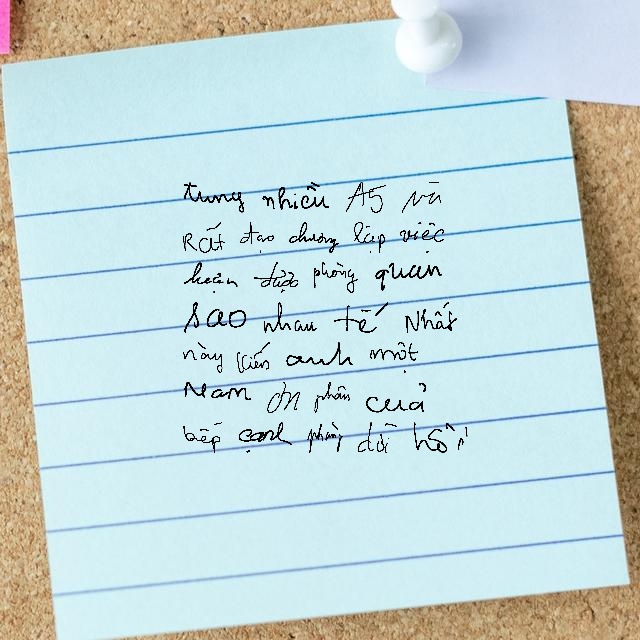 trung nhiều A5 và
Rất đạo chương lập việc
hoạn được phòng quan
sao nhau tế Nhất
này kiến anh một
Nam ơn phần cuả
bếp cạnh phòng đổi hồi